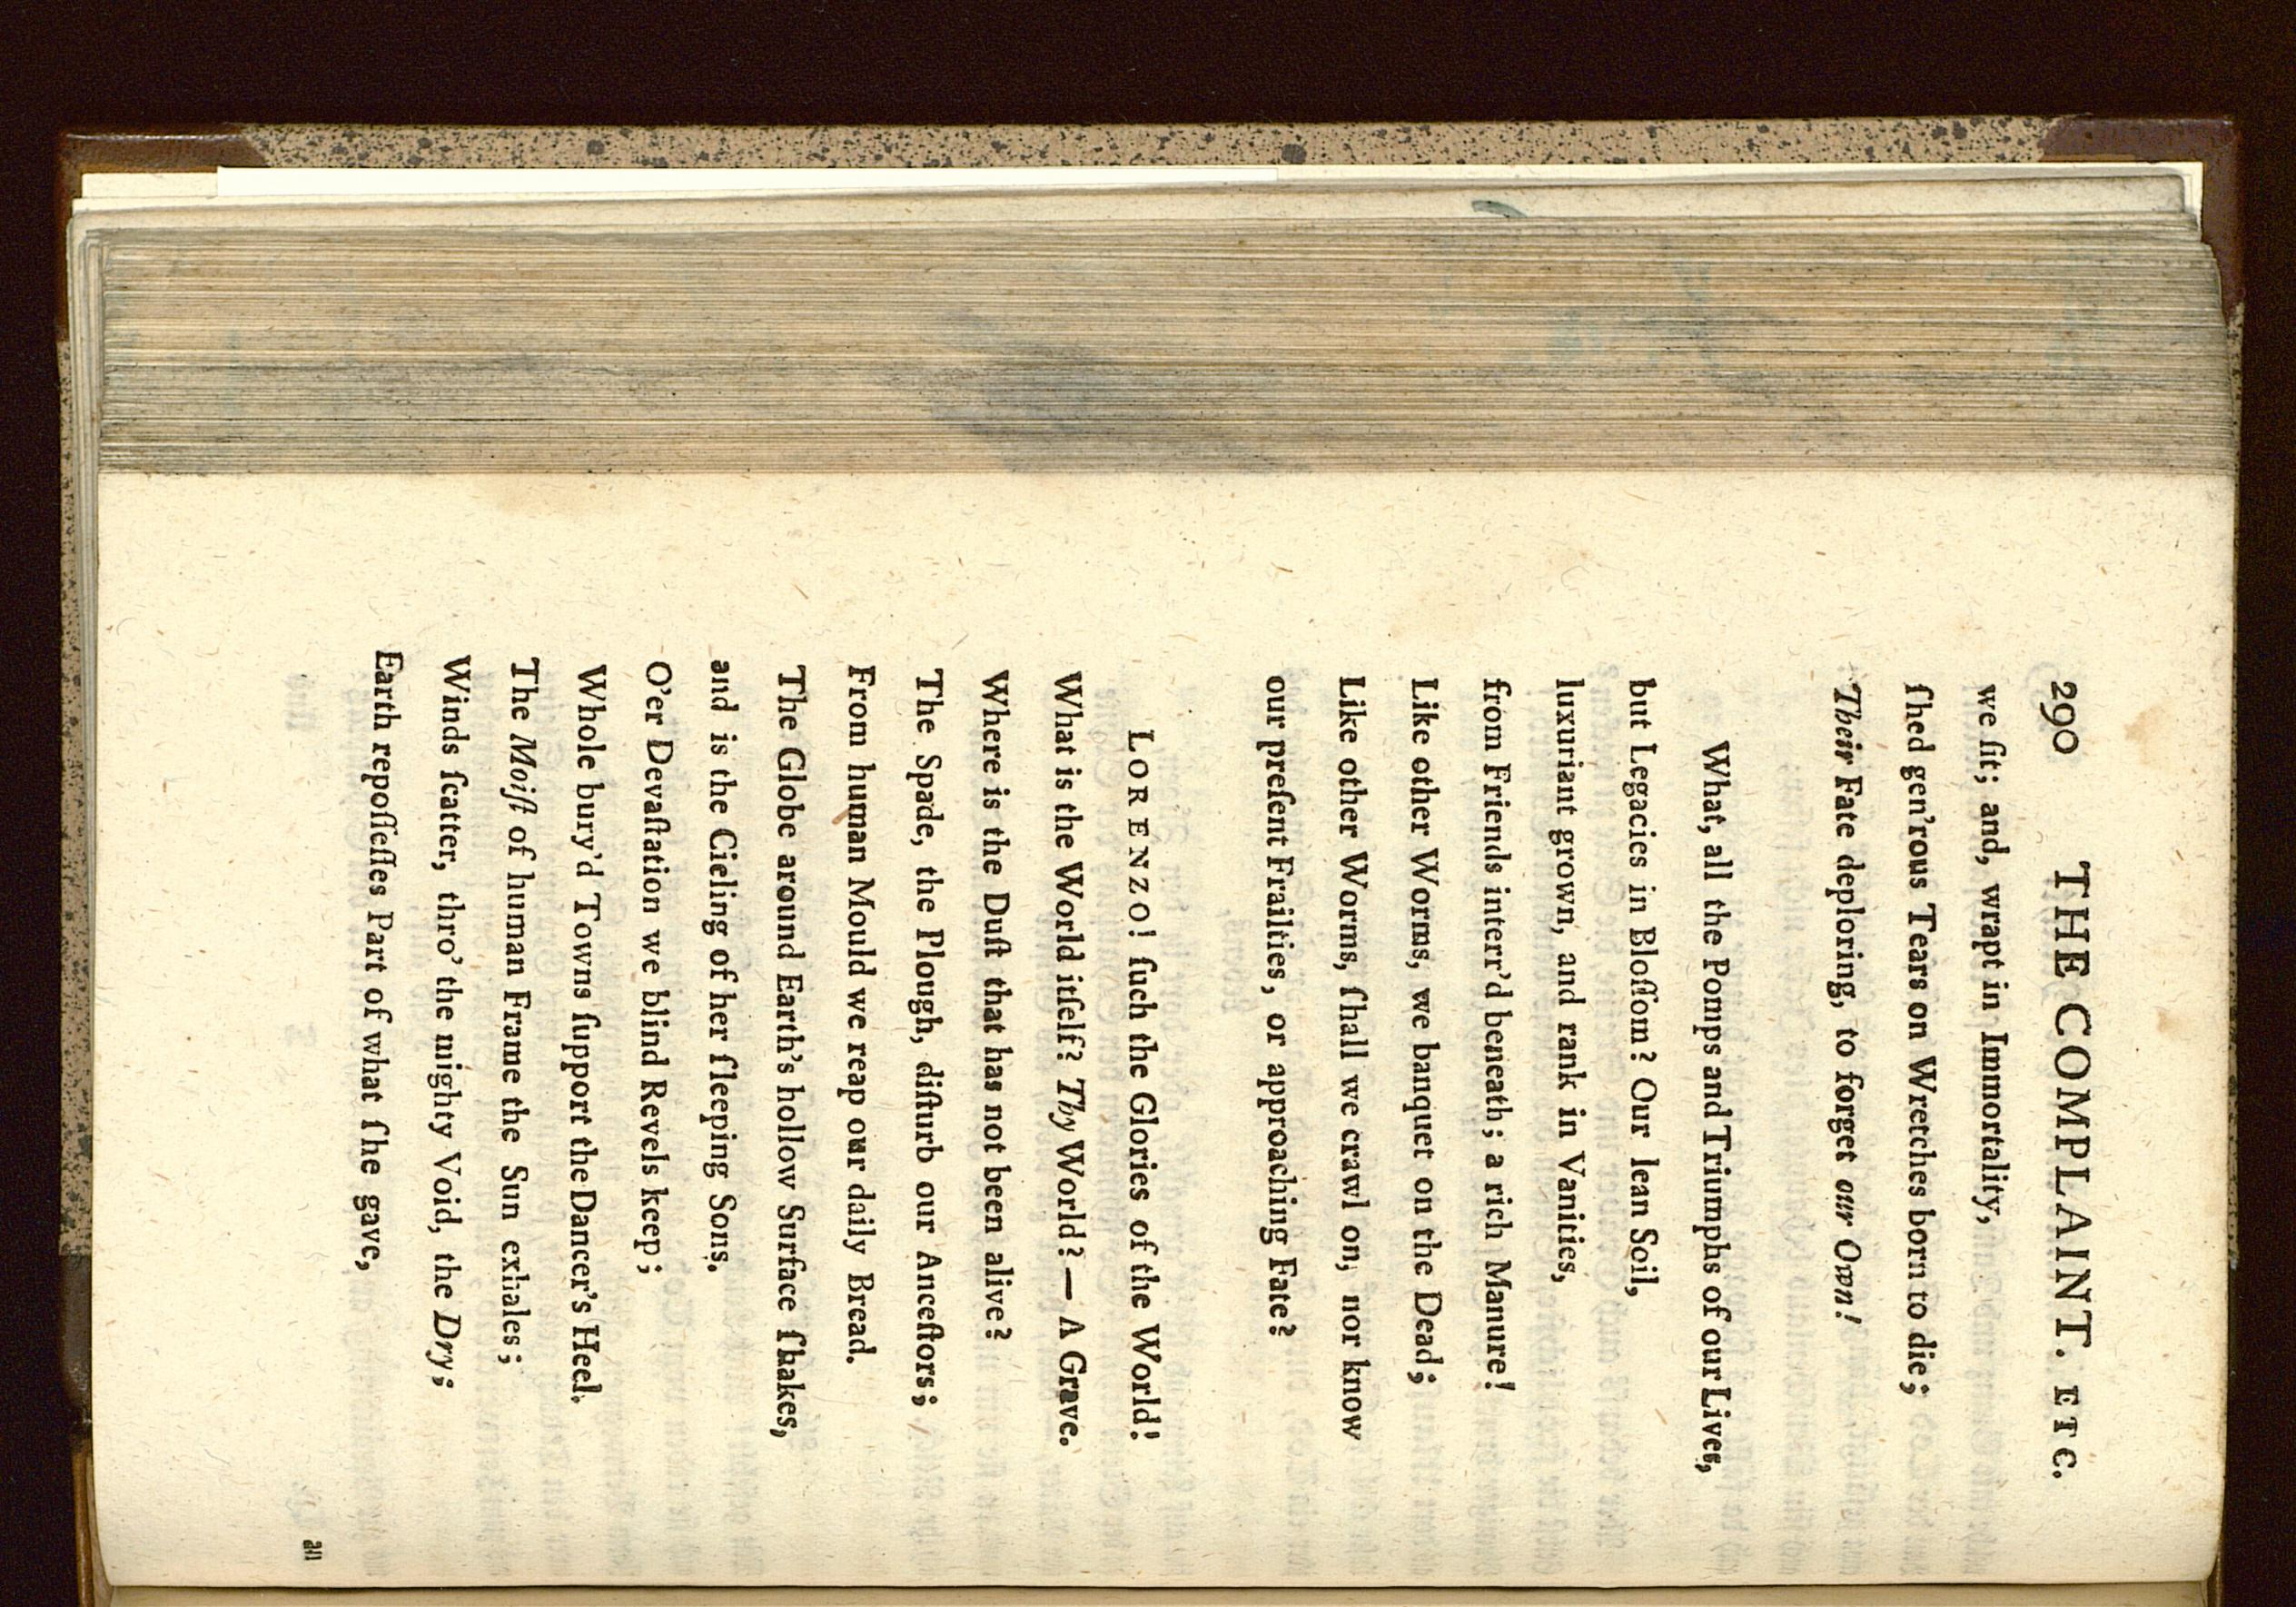 290 THE COMPLAINT. ETC.
we ſit; and, wrapt in Immortality,
ſhed gen'rous Tears on Wretches born to die;
Their Fate deploring, to forget our Own!
What, all the Pomps and Triumphs of our Lives,
but Legacies in Bloſſom? Our lean Soil,
luxuriant grown, and rank in Vanities,
from Friends interr'd beneath; a rich Manure!
Like other Worms, we banquet on the Dead;
Like other Worms, ſhall we crawl on, nor know
our preſent Frailties, or approaching Fate?
LORENZO! ſuch the Glories of the World!
What is the World itſelf? Thy World? — A Grave.
Where is the Duſt that has not been alive?
The Spade, the Plough, diſturb our Anceſtors;
From human Mould we reap our daily Bread.
The Globe around Earth's hollow Surface ſhakes,
and is the Cieling of her ſleeping Sons.
O'er Devaſtation we blind Revels keep;
Whole bury'd Towns ſupport the Dancer's Heel.
The Moiſt of human Frame the Sun exhales;
Winds ſcatter, thro' the mighty Void, the Dry;
Earth repoſſeſſes Part of what ſhe gave,
an